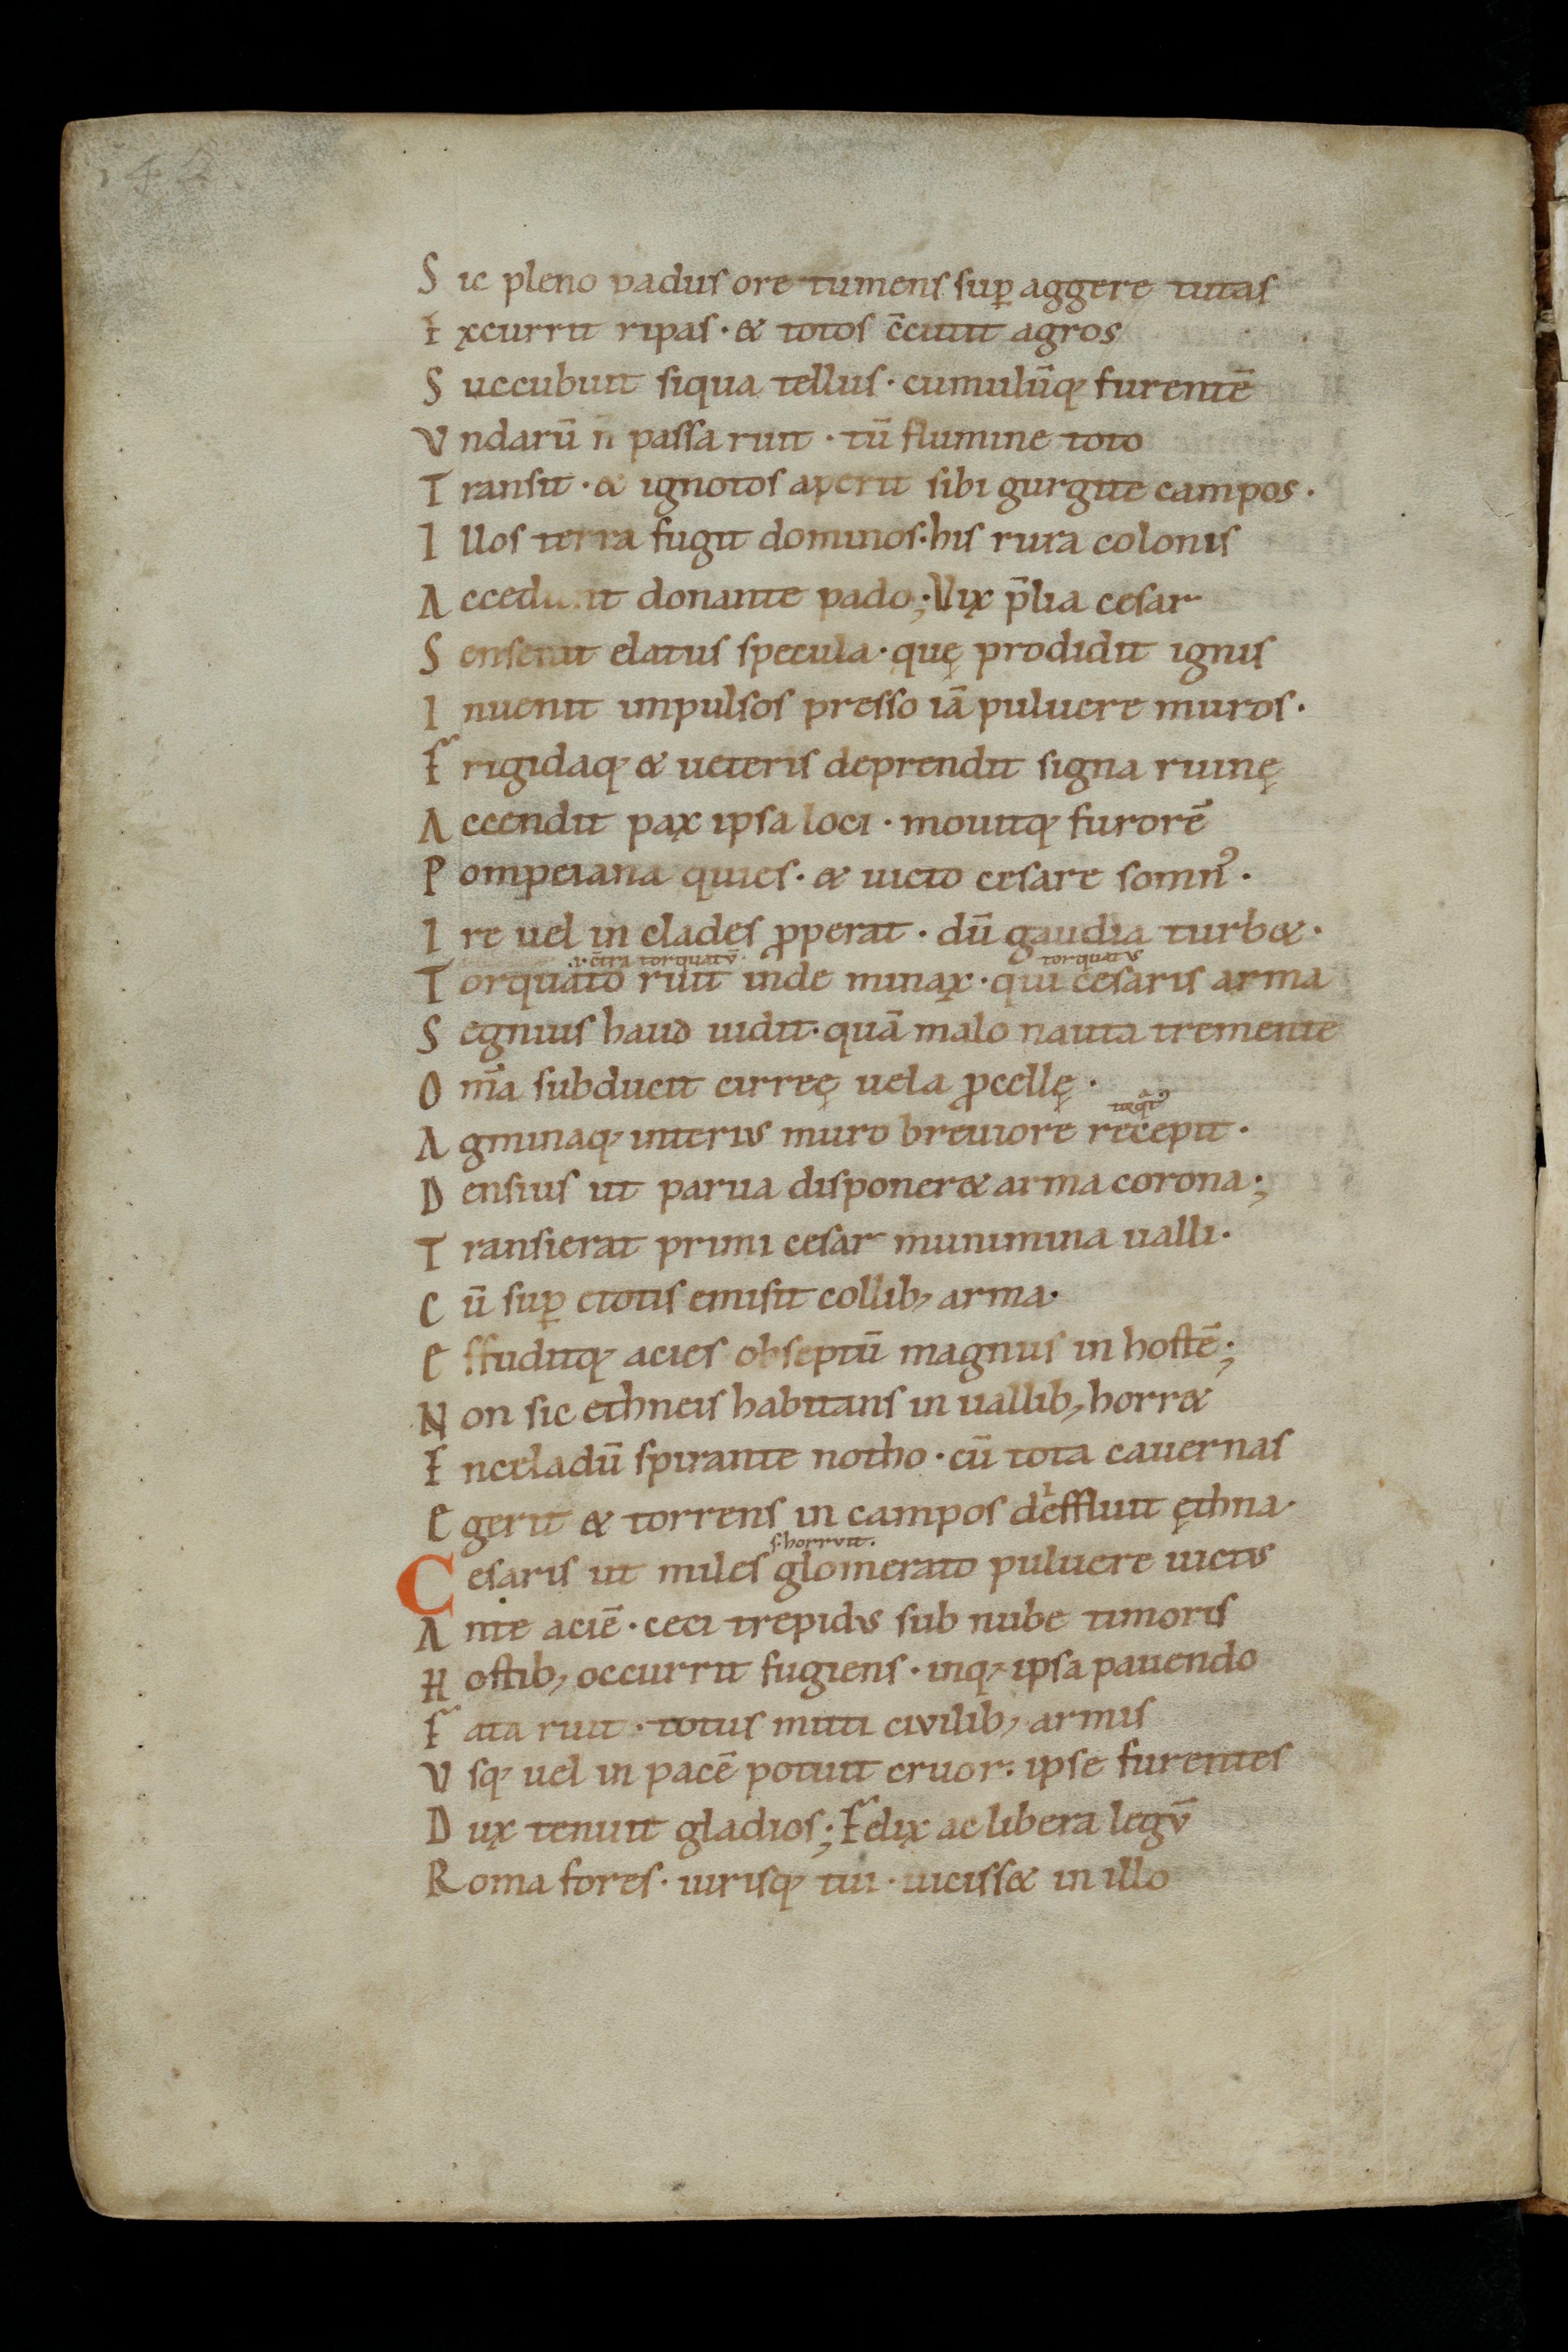 Sic pleno padus ore tumens sup̱ aggere tutas
Excurrit ripas · & totos c̄cutit agros
Succubuit siqua tellus · cumulūq; furentē
Vndarū n̄ passa ruit · tū flumine toto
Transit · & ignotos aperit sibi gurgite campos ·
Illos terra fugit dominos · his rura colonis
Accedunt donante pado ; Vix p̄lia cesar
Senserat elatus specula · quę prodidit ignis
Inuenit inpulsos presso iā puluere muros ·
Frigidaq; & ueteris deprendit signa ruinę
Accendit pax ipsa loci · mouitq; furorē
Pompeiana quies · & uicto cesare somn᾽ ·
Ire uel in clades ꝓperat · dū gaudia turb& ·
.i. c̄tra torquatū · torquatus
Torquato ruit inde minax · qui cesaris arma
Segnius haud uidit · quā malo nauta tremente
Om̄a subducit cirreę uela ꝓcellę ·
Agminaq; interius muro breuiore recepit ·
Densius ut parua disponer& arma corona ;
Transierat primi cesar munimina ualli ·
Cū sup̱ e totis emisit collib; arma ·
Effuditq; acies obseptū magnus in hostē ;
Non sic ethneis habitans in uallib; horr&
Enceladū spirante notho · cū tota cauernas
Egerit & torrens in campos deffluit ęthna ·
s · horruit ·
Cesaris ut miles glomerato puluere uictus
Ante aciē · ceci trepidus sub nube timoris
Hostib; occurrit fugiens · inq; ipsa pauendo
Fata ruit · totus mitti civilib; armis
Vsq; uel in pacē potuit cruor : ipse furentes
Dux tenuit gladios ; Felix ac libera legū
Roma fores · iurisq; tui · uiciss& in illo